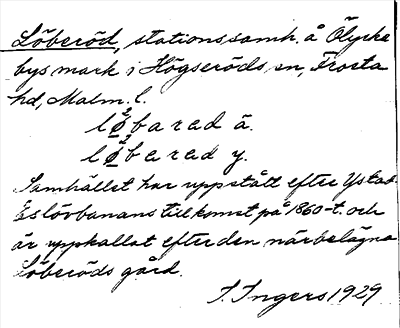 Löberöd, stationssamh. å Ölycke
bys mark i Högseröds sn, Frosta
hd, Malm. l.
løbarad ä.
løbarad y.
Samhället har uppstått efter Ystad-
Eslövbanans tillkomst på 1860-t. och
är uppkallat efter den närbelägna
Löberöds gård.
I. Ingers 1929